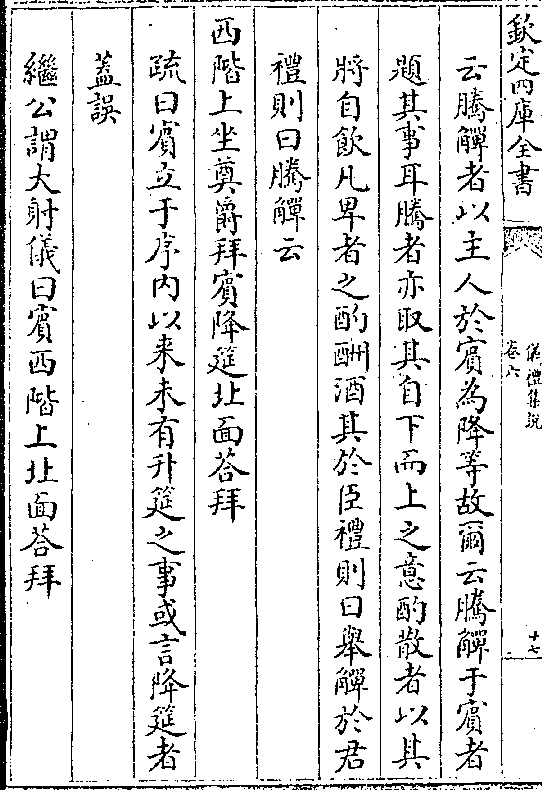 欽定四庫全書
儀禮集說
卷六
十七
云騰觶者以主人於賓為降等故爾云騰觶于賓者
題其事耳騰者亦取其自下而上之意酌散者以其
將自飲凡卑者之酌酬酒其於臣禮則曰舉觶於君
禮則曰騰觶云
西階上坐奠爵拜賓降筵北面荅拜
疏曰賓立于序内以来未有升筵之事或言降筵者
蓋誤
繼公謂大射儀曰賓西階上北面荅拜